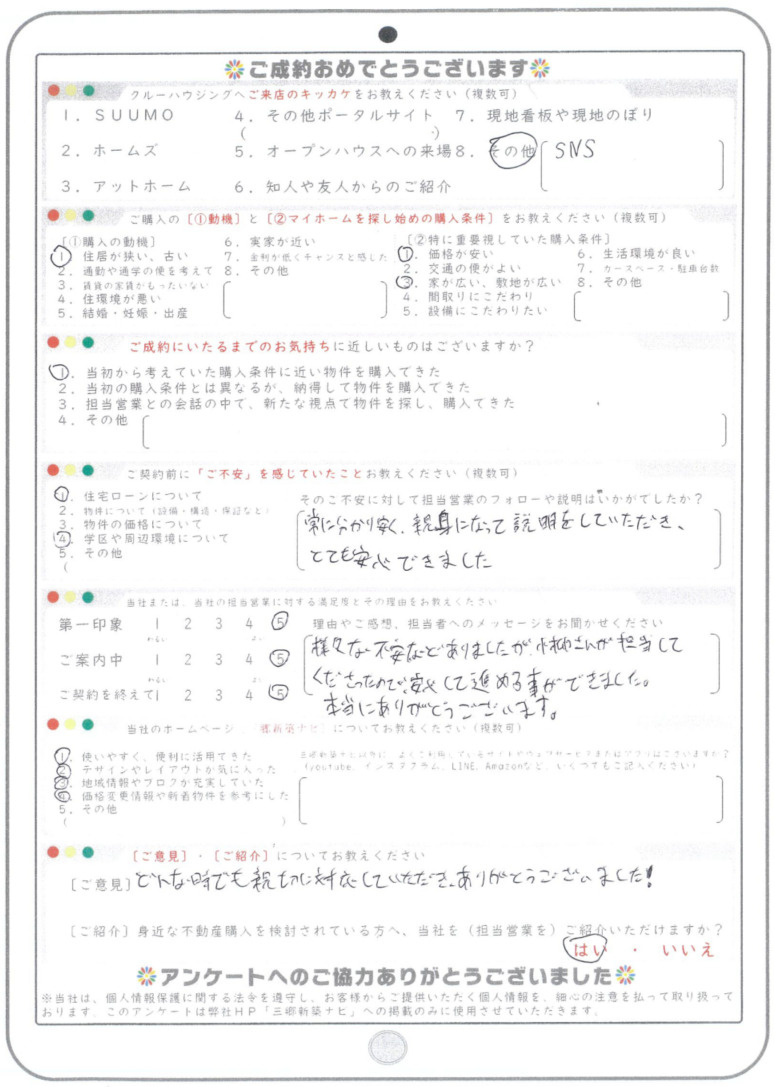 ご成約おめでとうございます
クルーハウジングへご来店のキッカケをお教えください（複数可）
1. SUUMO　4. その他ポータルサイト　7. 現地看板や現地のぼり
(　)
2. ホームズ　5. オープンハウスへの来場　8. その他 [ SNS ]
3. アットホーム　6. 知人や友人からのご紹介
ご購入の［①動機］と［②マイホームを探し始めの購入条件］をお教えください（複数可）
［①購入の動機］　6. 実家が近い　［②特に重要視していた購入条件］
1. 住居が狭い、古い　7. 金利が低くチャンスと感じた　1. 価格が安い　6. 生活環境が良い
2. 通勤や通学の便を考えて　8. その他　2. 交通の便がよい　7. カースペース・駐車台数
3. 賃貸の家賃がもったいない　3. 家が広い、敷地が広い　8. その他
4. 住環境が悪い　4. 間取りにこだわり
5. 結婚・妊娠・出産　5. 設備にこだわりたい
ご成約にいたるまでのお気持ちに近しいものはございますか？
1. 当初から考えていた購入条件に近い物件を購入できた
2. 当初の購入条件とは異なるが、納得して物件を購入できた
3. 担当営業との会話の中で、新たな視点で物件を探し、購入できた
4. その他
ご契約前に「ご不安」を感じていたことお教えください（複数可）
1. 住宅ローンについて　そのご不安に対して担当営業のフォローや説明はいかがでしたか？
2. 物件について（設備・構造・保証など）
3. 物件の価格について　常に分かり安く、親身になって説明をしていただき、
4. 学区や周辺環境について
5. その他　とても安心できました
(
当社または、当社の担当営業に対する満足度とその理由をお教えください
第一印象　1　2　3　4　5　理由やご感想、担当者へのメッセージをお聞かせください
わるい　よい
様々な不安などありましたが、小柳さんが担当して
ご案内中　1　2　3　4　5
くださったので、安心して進める事ができました。
わるい　よい
ご契約を終えて　1　2　3　4　5
本当にありがとうございます。
当社のホームページ　郷新築ナビ　についてお教えください（複数可）
1. 使いやすく、便利に活用できた　三郷新築ナビ以外に、よくご利用しているサイトやウェブサービスまたはアプリはございますか？
2. デザインやレイアウトが気に入った　(youtube、インスタグラム、LINE、Amazonなど、いくつでもご記入ください)
3. 地域情報やブログが充実していた
4. 価格変更情報や新着物件を参考にした
5. その他
(　)
［ご意見］・［ご紹介］についてお教えください
［ご意見］どんな時でも親切に対応していただき、ありがとうございました!
［ご紹介］身近な不動産購入を検討されている方へ、当社を（担当営業を）ご紹介いただけますか？
はい　・　いいえ
アンケートへのご協力ありがとうございました
※当社は、個人情報保護に関する法令を遵守し、お客様からご提供いただく個人情報を、細心の注意を払って取り扱って
おります。このアンケートは弊社HP「三郷新築ナビ」への掲載のみに使用させていただきます。